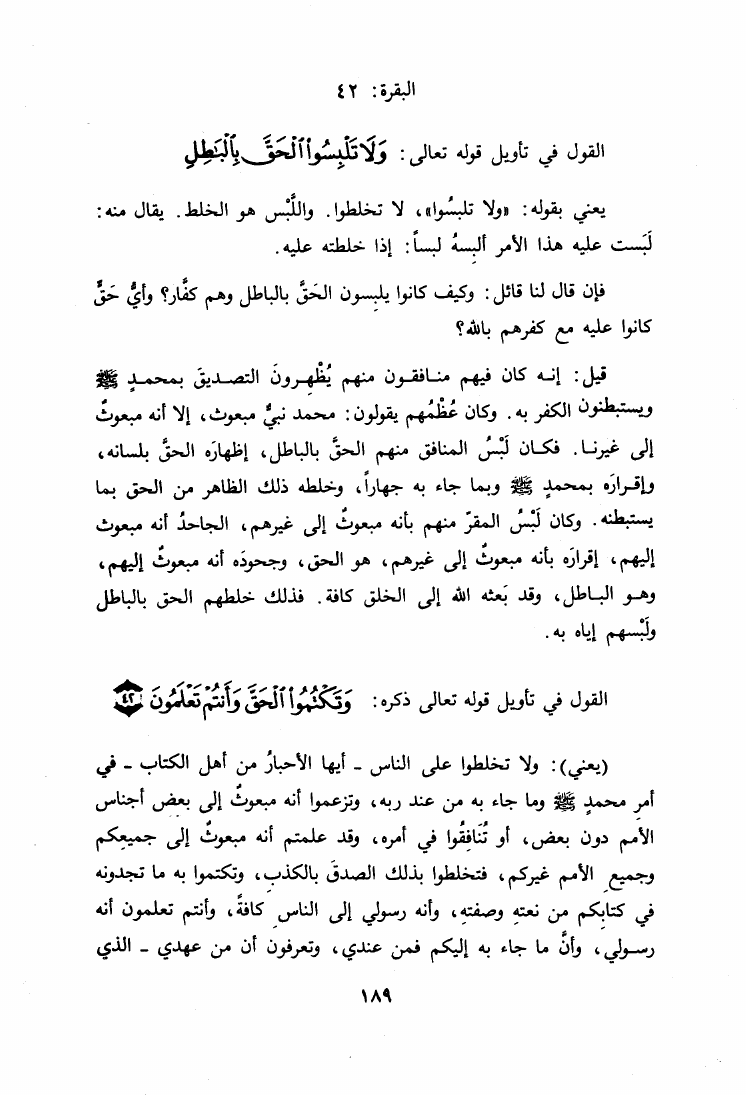 البقرة: ٤٢
القول في تأويل قوله تعالى: وَلَا تَلْبِسُوا۟ ٱلْحَقَّ بِٱلْبَٰطِلِ
يعني بقوله: «ولا تلبسُوا»، لا تخلطوا. واللَّبْس هو الخلط. يقال منه:
لَبَست عليه هذا الأمر ألبِسهُ لبساً: إذا خلطته عليه.
فإن قال لنا قائل: وكيف كانوا يلبِسون الحَقَّ بالباطل وهم كفَّار؟ وأيُّ حَقٍّ
كانوا عليه مع كفرهم بالله؟
قيل: إنـه كان فيهم منـافقـون منهم يُظْهِـرونَ التصـديقَ بمحمـدٍ ﷺ
ويستبطنون الكفر به. وكان عُظْمُهم يقولون: محمد نبيٌّ مبعوث، إلا أنه مبعوثٌ
إلى غيرنـا. فكـان لَبْسُ المنافق منهم الحقَّ بالباطل، إظهارَه الحقَّ بلسانه،
وإقـرارَه بمحمدٍ ﷺ وبما جاء به جهاراً، وخلطه ذلك الظاهر من الحق بما
يستبطنه. وكان لَبْسُ المقرّ منهم بأنه مبعوثٌ إلى غيرهم، الجاحدُ أنه مبعوث
إليهم، إقرارَه بأنه مبعوثٌ إلى غيرهم، هو الحق، وجحودَه أنه مبعوثٌ إليهم،
وهـو البـاطل، وقد بَعثه الله إلى الخلق كافة. فذلك خلطهم الحق بالباطل
ولَبْسهم إياه به.
القول في تأويل قوله تعالى ذكره: وَتَكْتُمُوا۟ ٱلْحَقَّ وَأَنتُمْ تَعْلَمُونَ ٤٢
(يعني): ولا تخلطوا على الناس - أيها الأحبارُ من أهل الكتاب - في
أمرِ محمدٍ ﷺ وما جاء به من عند ربه، وتزعموا أنه مبعوثٌ إلى بعضِ أجناس
الأمم دون بعض، أو تُنَافِقُوا في أمره، وقد علمتم أنه مبعوثٌ إلى جميعِكم
وجميعِ الأمم غيركم، فتخلطوا بذلك الصدقَ بالكذب، وتكتموا به ما تجدونه
في كتابِكم من نعتهِ وصفتهِ، وأنه رسولي إلى الناسِ كافةً، وأنتم تعلمون أنه
رسـولي، وأنَّ ما جاء به إليكم فمن عندي، وتعرفون أن من عهدي - الذي
١٨٩